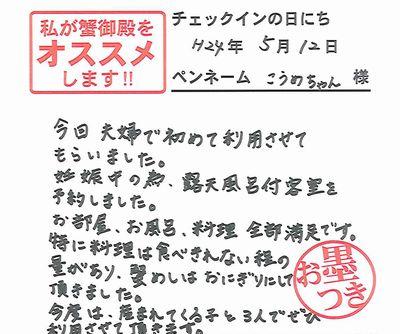 私が蟹御殿を
オススメ
します!!
チェックインの日にち
H24年 5月 12日
ペンネーム こうめちゃん 様
今回 夫婦で初めて利用させて
もらいました。
妊娠中の為、露天風呂付客室を
予約しました。
お部屋、お風呂、料理 全部満足です。
特に料理は食べきれない程の
量があり、蟹めしはおにぎりにして
頂きました。
今度は、産まれてくる子と3人でぜひ
利用させて頂きます。
お墨
つき